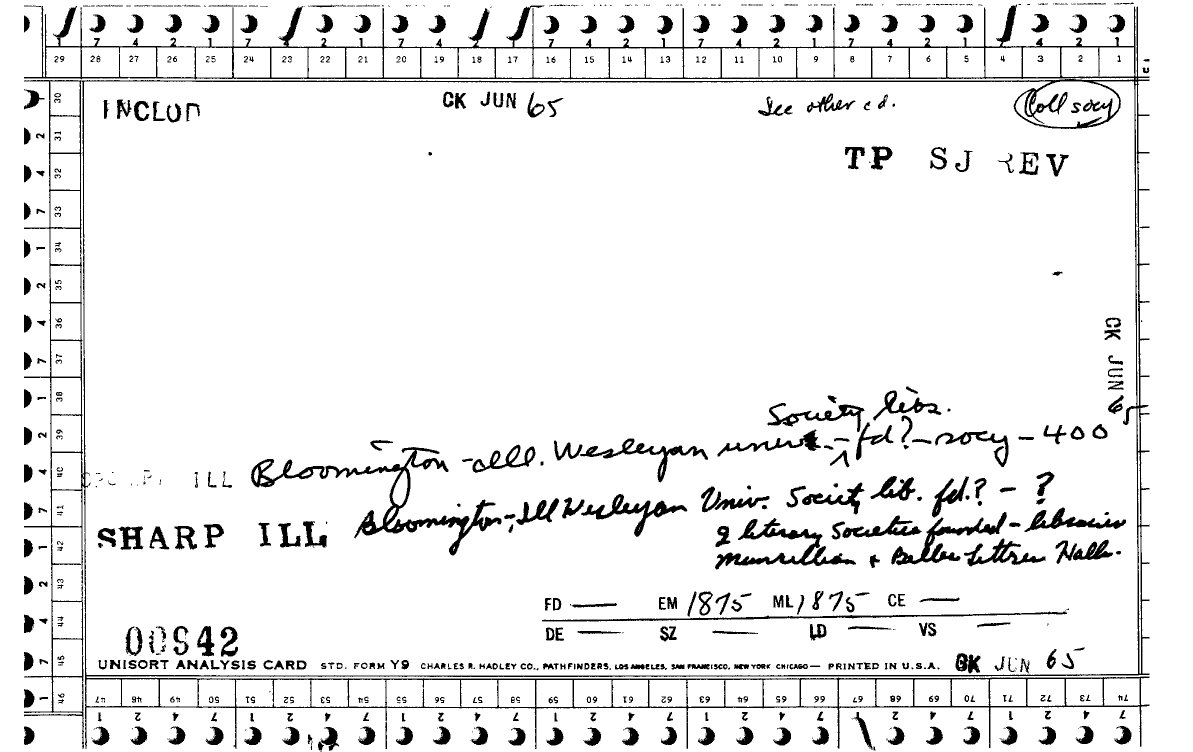 1 7 4 2 1 7 4 2 1 7 4 2 1 7 4 2 1 7 4 2 1 7 4 2 1 7 4 2 1
29 28 27 26 25 24 23 22 21 20 19 18 17 16 15 14 13 12 11 10 9 8 7 6 5 4 3 2 1
INCLUD CK JUN 65 See other cd. Coll socy
TP SJ REV
CK JUN 65
Society libs.
ILL Bloomington - Ill. Wesleyan univ. - fd? - socy - 400
SHARP ILL Bloomington - Ill Wesleyan Univ. Society lib. fd.? - ?
2 literary Societies founded - libraries
Munsellian & Belles Lettres Halls.
FD — EM 1875 ML 1875 CE —
DE — SZ — LD — VS —
00942
UNISORT ANALYSIS CARD STD. FORM Y9 CHARLES R. HADLEY CO., PATHFINDERS, LOS ANGELES, SAN FRANCISCO, NEW YORK CHICAGO — PRINTED IN U.S.A. CK JUN 65
30 31 32 33 34 35 36 37 38 39 40 41 42 43 44 45 46
47 48 49 50 51 52 53 54 55 56 57 58 59 60 61 62 63 64 65 66 67 68 69 70 71 72 73 74
1 2 4 7 1 2 4 7 1 2 4 7 1 2 4 7 1 2 4 7 1 2 4 7 1 2 4 7